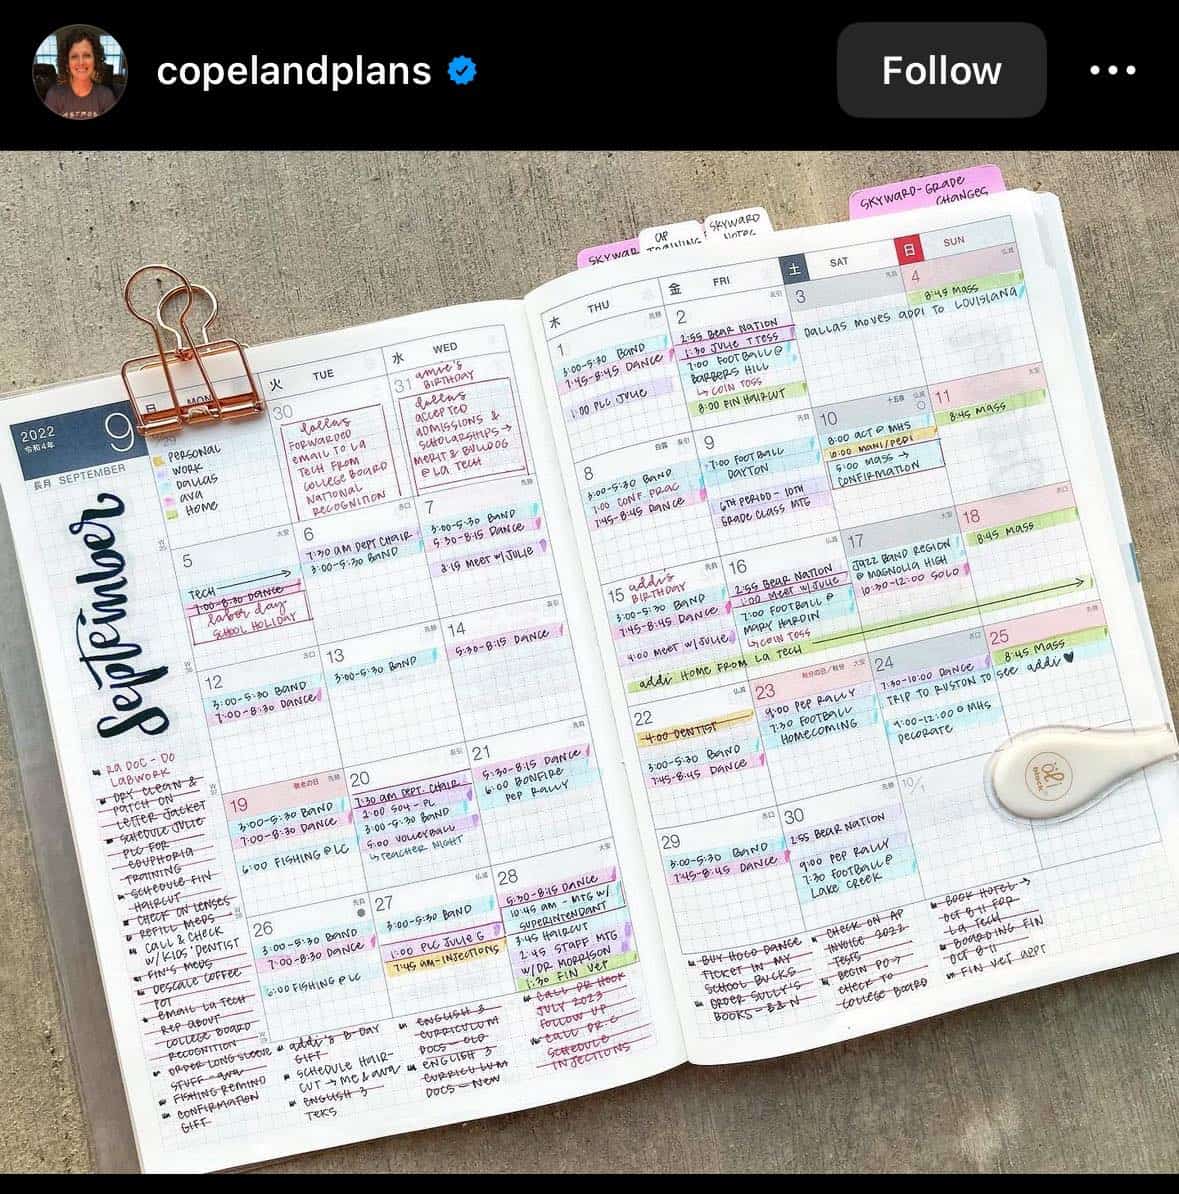 copelandplans
Follow
SKYWARD-GRADE
CHANGES
SKYWARD
AP
TRAINING
SKYWARD
NOTES
2022
令和4年
9
長月 SEPTEMBER
September
MON
火 TUE
水 WED
木 THU
金 FRI
土 SAT
日 SUN
29
PERSONAL
WORK
DALLAS
AVA
HOME
30
dallas
FORWARDED
EMAIL TO LA
TECH FROM
COLLEGE BOARD
NATIONAL
RECOGNITION
31
amie's
BIRTHDAY
dallas
ACCEPTED
ADMISSIONS &
SCHOLARSHIPS →
MERIT & BULLDOG
@ LA TECH
1
3:00-5:30 BAND
7:45-8:45 DANCE
1:00 PLC JULIE
2
2:55 BEAR NATION
1:30 JULIE TTESS
7:00 FOOTBALL @
BARBERS HILL
↳ COIN TOSS
8:00 FIN HAIRCUT
3
DALLAS MOVES APPT TO LOUISIANA
4
8:45 MASS
5
TECH
7:00-8:30 DANCE
labor day
SCHOOL HOLIDAY
6
7:30 AM DEPT CHAIR
3:00-5:30 BAND
7
3:00-5:30 BAND
5:30-8:15 DANCE
3:15 MEET W/JULIE
8
3:00-5:30 BAND
7:00 CONF. PRAC
7:45-8:45 DANCE
9
7:00 FOOTBALL
DAYTON
6TH PERIOD - 10TH
GRADE CLASS MTG
10
8:00 ACT @ MHS
10:00 MANI/PEDI
5:00 MASS →
CONFIRMATION
11
8:45 MASS
12
3:00-5:30 BAND
7:00-8:30 DANCE
13
3:00-5:30 BAND
14
5:30-8:15 DANCE
15
addi's
BIRTHDAY
3:00-5:30 BAND
7:45-8:45 DANCE
4:00 MEET W/JULIE
16
2:55 BEAR NATION
1:00 MEET W/JULIE
7:00 FOOTBALL @
MARY HARDIN
↳ COIN TOSS
addi HOME FROM LA TECH
17
JAZZ BAND REGION
@ MAGNOLIA HIGH
10:30-12:00 SOLO
18
8:45 MASS
19
3:00-5:30 BAND
7:00-8:30 DANCE
6:00 FISHING @ LC
20
7:30 AM DEPT. CHAIR
2:00 504 - PL
3:00-5:30 BAND
5:00 VOLLEYBALL
↳ TEACHER NIGHT
21
5:30-8:15 DANCE
6:00 BONFIRE
PEP RALLY
22
4:00 DENTIST
3:00-5:30 BAND
7:45-8:45 DANCE
23
9:00 PEP RALLY
7:30 FOOTBALL
HOMECOMING
24
7:30-10:00 DANCE
TRIP TO RUSTON TO see addi ♥
9:00-12:00 @ MHS
DECORATE
25
8:45 MASS
26
3:00-5:30 BAND
7:00-8:30 DANCE
6:00 FISHING @ LC
27
3:00-5:30 BAND
1:00 PLC JULIE G
7:45 AM-INJECTIONS
28
5:30-8:15 DANCE
10:45 AM - MTG W/
SUPERINTENDANT
3:45 HAIRCUT
2:45 STAFF MTG
W/DR. MORRISON
1:30 FIN VET
29
3:00-5:30 BAND
7:45-8:45 DANCE
30
2:55 BEAR NATION
9:00 PEP RALLY
7:30 FOOTBALL @
LAKE CREEK
10/1
RA DOC - DO
LABWORK
DRY CLEAN &
PATCH ON
LETTER JACKET
SCHEDULE JULIE
PLC FOR
EDUPHORIA
TRAINING
SCHEDULE FIN
HAIRCUT
CHECK ON LENSES
REFILL MEDS
CALL & CHECK
W/KIDS' DENTIST
FIN'S MEDS
DESCALE COFFEE
POT
EMAIL LA TECH
REP ABOUT
COLLEGE BOARD
RECOGNITION
ORDER LONG SLEEVE
STUFF - ava
FISHING REMIND
CONFIRMATION
GIFT
addi's B-DAY
GIFT
SCHEDULE HAIR-
CUT → ME & ava
ENGLISH 3
TEKS
ENGLISH 3
CURRICULUM
DOCS - OLD
ENGLISH 3
CURRICULUM
DOCS - NEW
CALL DR HOOK
JULY 2023
FOLLOW UP
CALL DR. C
SCHEDULE
INJECTIONS
BUY HOCO DANCE
TICKET IN MY
SCHOOL BUCKS
ORDER SULLY'S
BOOKS - B & N
CHECK ON AP
INVOICE 2022
TESTS
BEGIN PO →
CHECK TO
COLLEGE BOARD
BOOK HOTEL →
OCT 8-11 FOR
LA TECH
BOARDING FIN
OCT 8-11
FIN VET APPT